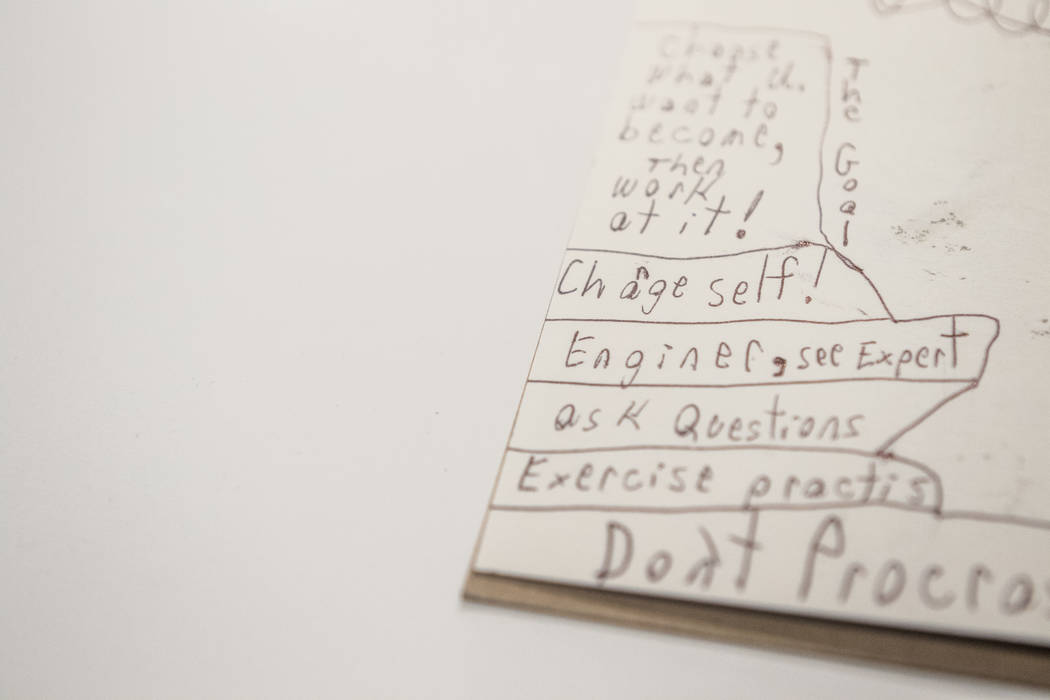 Choose
what u
want to
become,
Then
work
at it!
The Goal
Chage self!
Enginer, see Expert
ask Questions
Exercise practis
Dont Procras